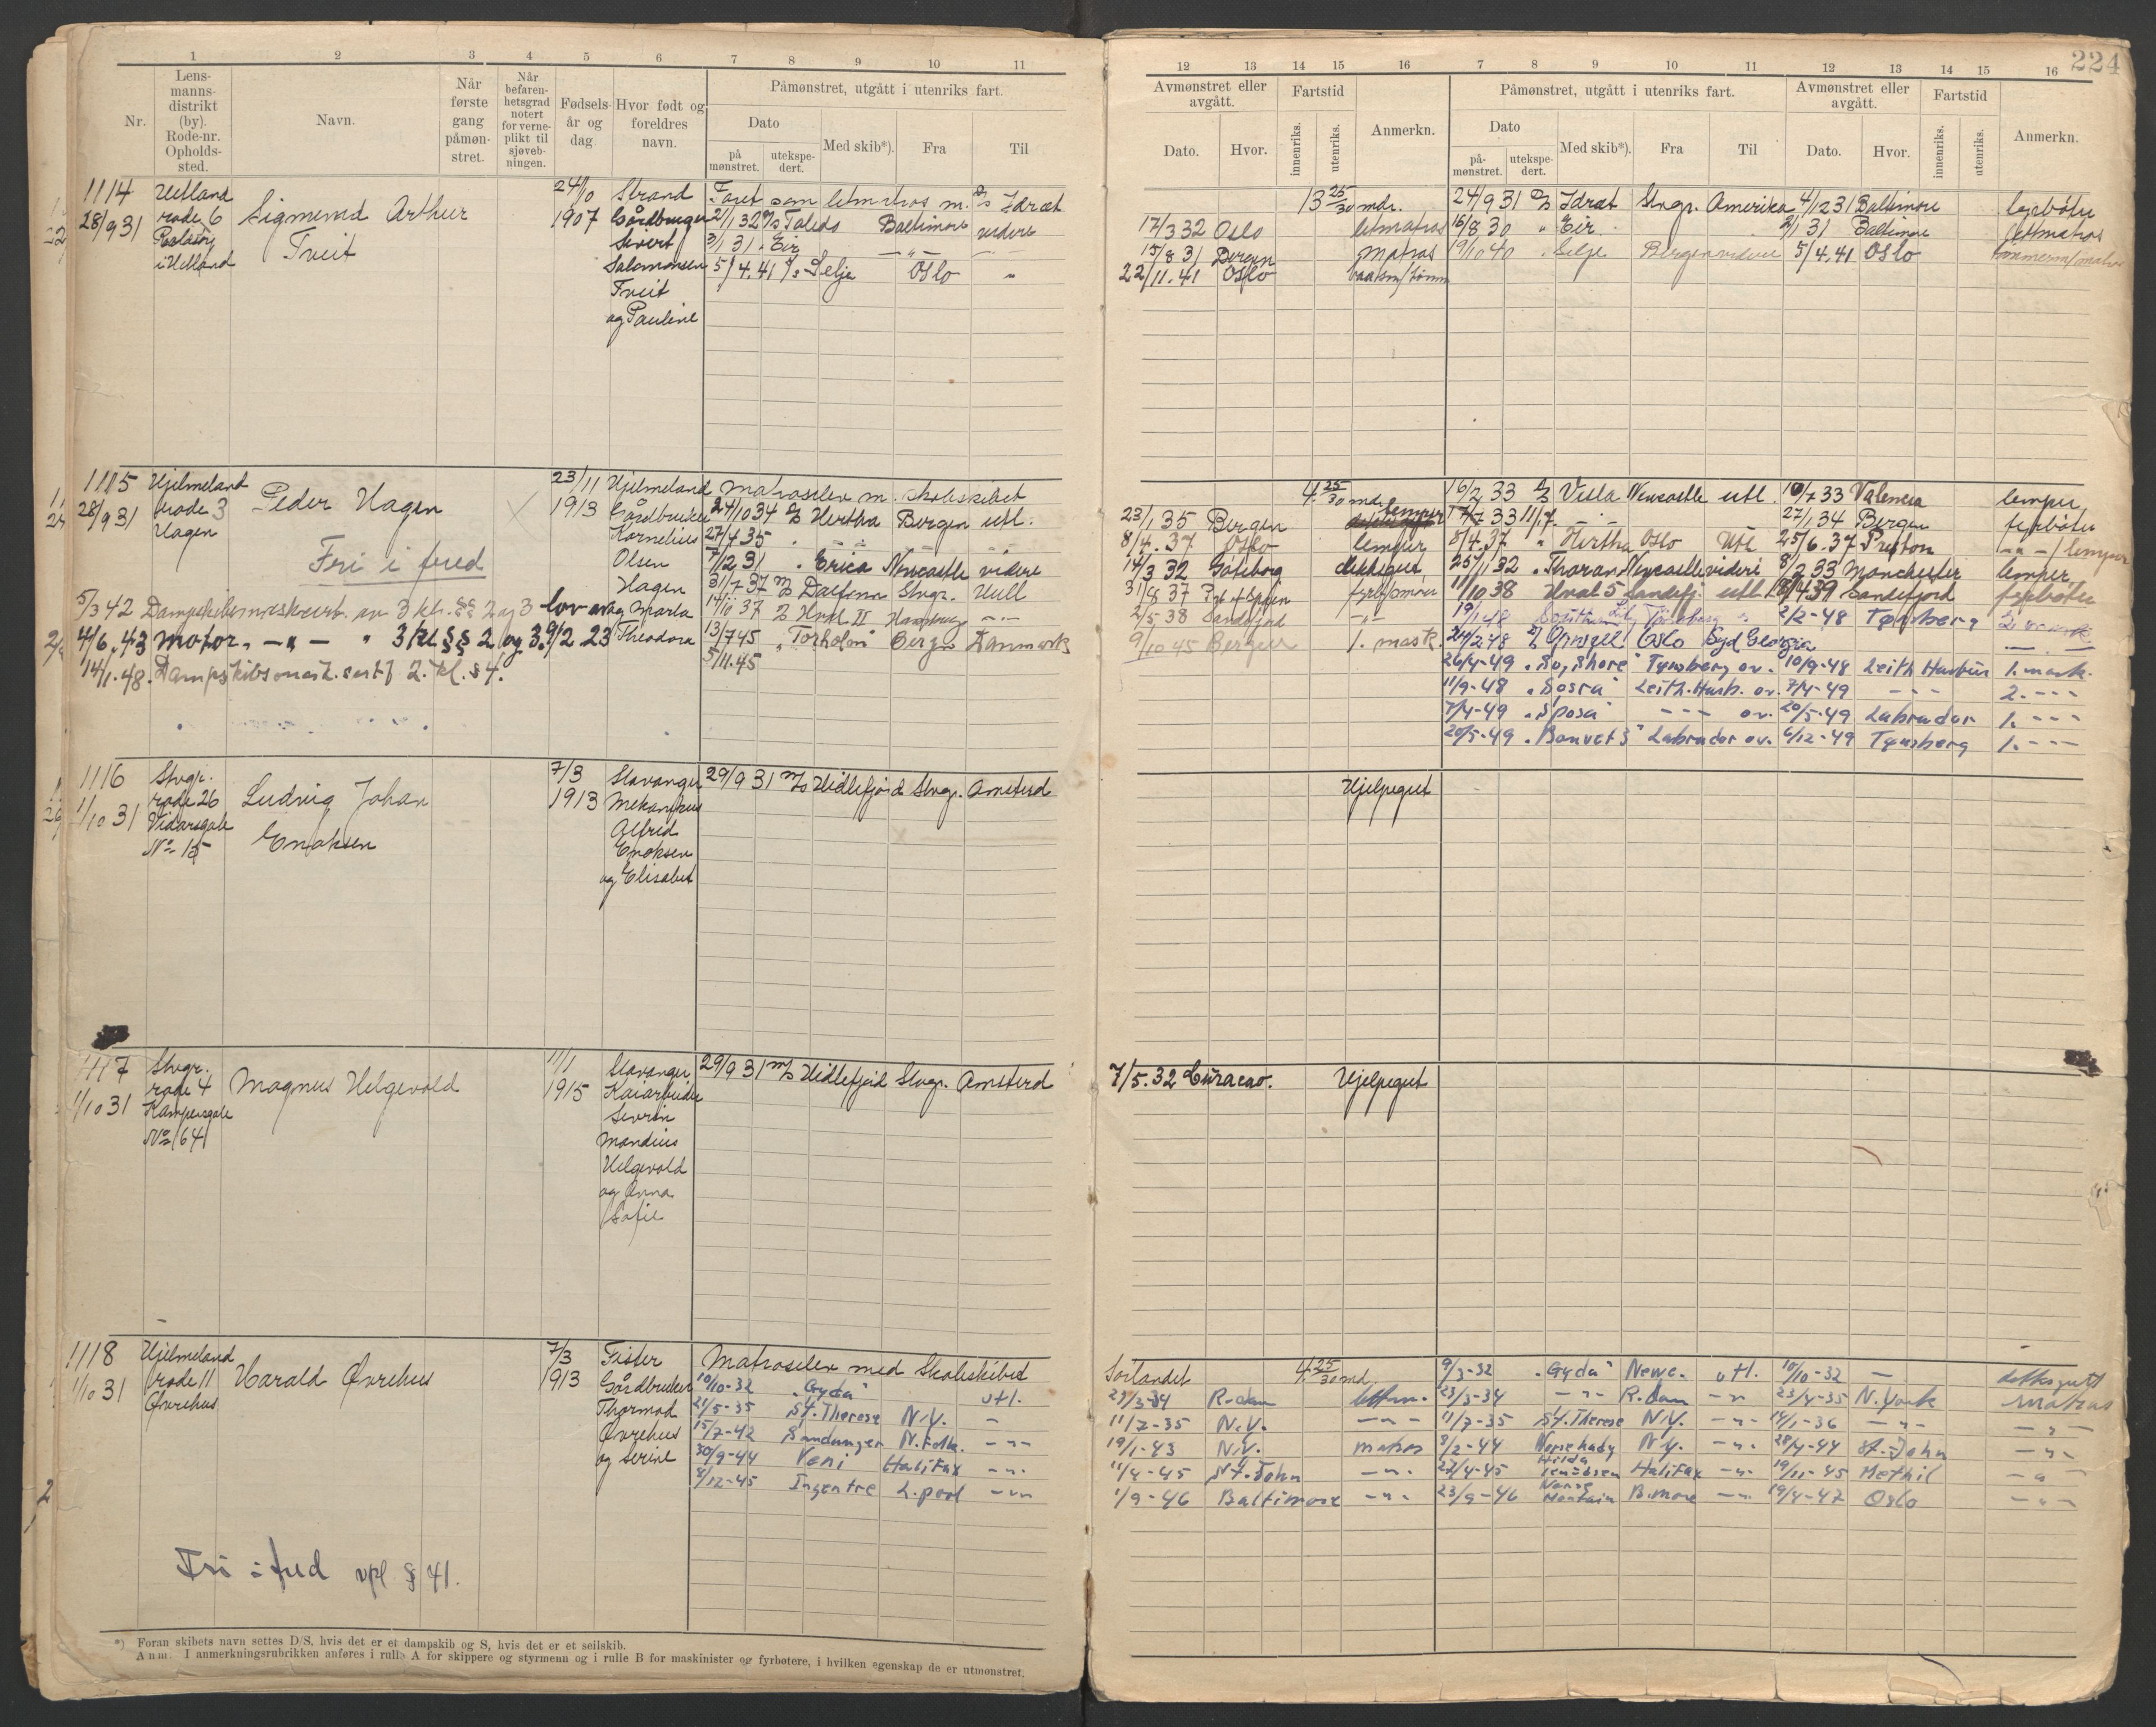 224
1 2 3 4 5 6 7 8 9 10 11
Nr.
Lens-
manns-
distrikt
(by).
Rode-nr.
Opholds-
sted.
Navn.
Når
første
gang
påmøn-
stret.
Når
befaren-
hetsgrad
notert
for verne-
plikt til
sjøveb-
ningen.
Fødsels-
år og
dag
Hvor født og
foreldres
navn.
Påmønstret, utgått i utenriks fart.
Dato
på
mønstret.
utekspe-
dert.
Med skib*).
Fra
Til
12 13 14 15 16 7 8 9 10 11 12 13 14 15 16
Avmønstret eller
avgått.
Dato.
Hvor.
Fartstid
innenriks.
utenriks.
Anmerkn.
Påmønstret, utgått i utenriks fart.
Dato
på-
mønstret.
utekspe-
dert.
Med skib*).
Fra
Til
Avmønstret eller
avgått.
Dato.
Hvor.
Fartstid
innenriks.
utenriks.
Anmerkn.
1114
28/9 31
rode 6
Sigmund Arthur
Tveit
24/10
1907
Strand
Gårdbruger
Sivert
Salomonsen
Tveit
og Pauline
Faret som letmatros m. D/S Idræt
2/1 32 Toledo Baltimore videre
3/1 31 " Eir — " —
5/4. 41 D/s Selja Oslo "
13 25/30 mdr. 24/9 31 D/S Idræt Stvgr. Amerika 4/12 31 Baltimore
17/3 32 Oslo letmatros 16/8 30 " Eir 2/1 31 Baltimore lettmatros
15/8 31 Bergen matros 19/10 40 " Selje Bergen videre 5/4. 41 Oslo
22/11. 41 Oslo
1115
28/9 31
Hjelmeland
rode 3
Hagen
Peder Hagen
Fri i fred
23/11
1913
Hjelmeland
Gårdbruker
Kornelius
Olsen
Hagen
og Marta
Theodora
Matroselev m. skoleskibet
24/10 34 D/S Hertha Bergen utl.
27/4 35 " — — —
7/12 31 " Erica Newcastle videre
31/7 37 M/S Dalfonn Stvgr. Hull
14/10 37 D/S Hval II Hamburg — " —
13/7 45 "Torholm" Bergen Danmark
5/11. 45
5/3 42 Dampskibsmaskcert. av 3 kl. §§ 2 og 3 lov av
4/6. 43 motor. — " — " 3 kl §§ 2 og 3. 9/2 23
14/1. 48. Dampskibsmask. sertf 2. kl. § 4.
4. 25/30 mdr. 16/2 33 D/S Vesla Newcastle utl. 10/7 33 Valencia lemper
23/1 35 Bergen lemper 33 27/1 34 Bergen fyrbøter
8/4. 37 Oslo lemper 8/4. 37 " Hertha Oslo Utl 25/6. 37 Preston — " — / lemper
14/3 32 Göteborg dekksgut 25/11 32 " Thoran Newcastle videre 8/2 33 Manchester lemper
31/8 37 11/10 38 Hval 5 Sandefj. utl. 4 39 Sandefjord fyrbøter
2/5 38 Sandefjord — " — 19/1 48 2/2-48 Tønsberg
9/10 45 Bergen 1. mask. 24/2 48 Oslo Syd Georgia
26/4-49 "So, Shore" Tønsberg ov. 10/9-48 Leith Harbur 1. mask.
11/9-48 "Sosra" Leith. Harb. ov. 7/4-49 — " — 2. — " —
7/4-49 "Sposa" — " — ov. 20/5-49 Labrador 1. — " —
20/5-49 "Bouvet 3" Labrador ov. 6/12-49 Tønsberg 1. — " —
1116
1/10 31
Stvgr.
rode 26
Vidarsgate
No 15
Ludvig Johan
Enoksen
7/3
1913
Stavanger
Mekanikus
Alfred
Enoksen
og Elisabet
29/9 31 M/S Hidlefjord Stvgr. Amsterd
Hjelpegut
1117
1/10 31
Stvgr.
rode 4
Kampensgate
No 64
Magnus Helgevold
11/1
1915
Stavanger
Kaiarbeider
Severin
Mandius
Helgevold
og Anna
Sofie
29/9 31 M/S Hidlefjord Stvgr. Amsterd
7/5. 32 Curacao. Hjelpegut
1118
1/10 31
Hjelmeland
rode 11
Øvrehus
Harald Øvrehus
7/3
1913
Fister
Gårdbruker
Thormod
Øvrehus
og Serine
Matroselev med Skoleskibet
10/10-32 "Gyda" utl.
21/5-35 St. Therese N.Y. —
15/7-42 Sandanger N.Folk. — " —
30/9-44 Veni Halifax — " —
8/12-45 Ingentre L.pool — " —
Sørlandet 4. 25/30 md. 9/3-32 "Gyda" Newc. utl. 10/10-32 — dekksgutt
R.dam lettm. 23/3-34 — " — R.dam — " — 23/4-35 N.York matros
11/7-35 N.Y. — " — 11/7-35 St. Therese N.Y. — " — 14/1-36 — " — — " —
19/1-43 N.Y. matros 8/2-44 Norse Lady N.Y. — " — 28/4-44 St. John — " —
11/4-45 St. John — " — 27/4-45 Hilda Knudsen Halifax — " — 19/11-45 Methil — " —
1/9-46 Baltimore — " — 23/9-46 Norse Montain B.more — " — 19/4-47 Oslo — " —
Fri i fred vpl. § 41.
*) Foran skibets navn settes D/S, hvis det er et dampskib og S, hvis det er et seilskib.
Anm. I anmerkningsrubrikken anføres i rulle A for skippere og styrmenn og i rulle B for maskinister og fyrbøtere, i hvilken egenskap de er utmønstret.